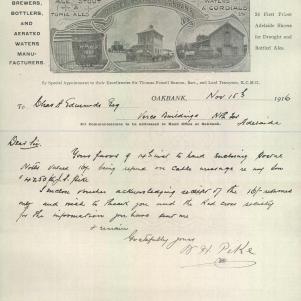 BREWERS,
BOTTLERS,
AND
AERATED
WATERS
MANU-
FACTURERS.
ALE STOUT
&
TONIC ALES
WATERS
& CORDIALS
36 First Prizes
Adelaide Shows
for Draught and
Bottled Ales.
By Special Appointment to their Excellencies Sir Thomas Fowell Buxton, Bart., and Lord Tennyson, K.C.M.G.
OAKBANK, Nov 15th 1916
To Chas A Edmunds Esq
Verco Buildings Nth Tce
Adelaide
All Communications to be addressed to Head Office at Oakbank.
Dear Sir
Yours favor of 14th inst to hand enclosing
Notes value 16/- being refund on cable message re my son
Pike
acknowledging receipt of the 16/- returned
me and wish to thank you and the Red Cross Society
for the information you have sent me
I remain
Gratefully yours
W H Pike